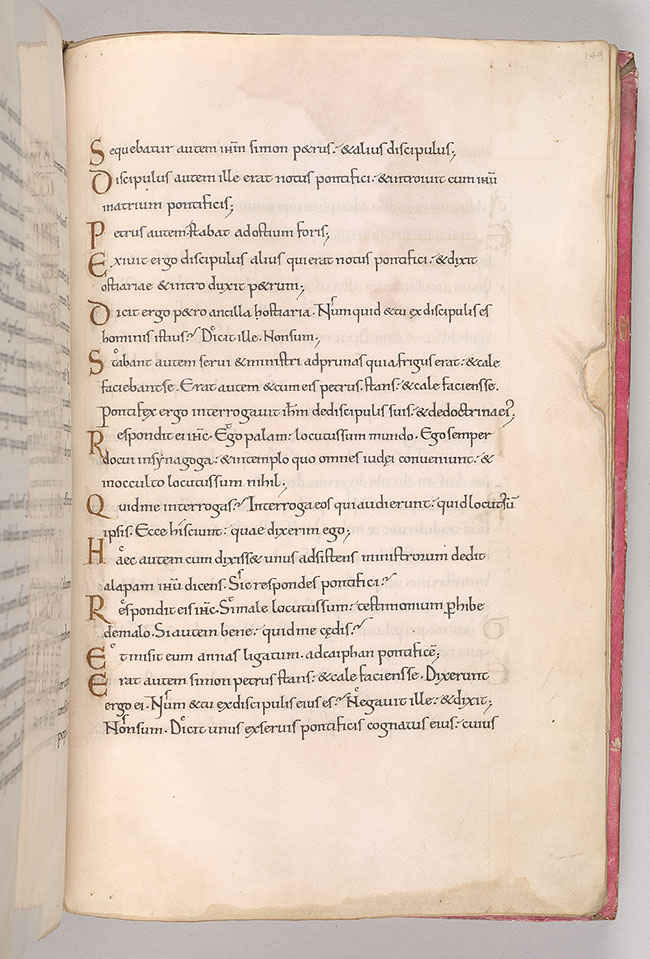 149
Sequebatur autem ihm simon p&rus: &alius discipulus;
Discipulus autem ille erat notus pontifici: &introiuit cum ihu
inatrium pontificis;
Petrus autem stabat adostium foris;
Exiuit ergo discipulus alius quierat notus pontifici: &dixit
ostiariae &intro duxit p&rum;
Dicit ergo p&ro ancilla hostiaria. Numquid &tu exdiscipulis es
hominis istius? Dicit ille. Nonsum;
Stabant autem serui &ministri adprunas quiafrigus erat: &cale
faciebantse. Erat autem &cumeis petrus. stans: &cale faciensse.
Pontifex ergo interrogauit ihm dediscipulis suis: &dedoctrina ei';
Respondit ei ihc. Ego palam: locutussum mundo. Egosemper
docui insynagoga: &intemplo quo omnes iudęi conueniunt: &
inocculto locutussum nihil;
Quidme interrogas? Interroga eos qui audierunt: quid locutussū
ipsis. Ecce hisciunt: quae dixerim ego;
Haec autem cum dixiss& unus adsistens ministrorum dedit
alapam ihu dicens. Sic respondes pontifici?
Respondit eis ihc. Simale locutussum: testimonium phibe
demalo. Siautem bene: quidme cędis?
Etmisit eum annas ligatum. adcaiphan pontificē;
Erat autem simon petrus stans: &cale faciensse. Dixerunt
ergo ei. Num &tu exdiscipulis eius es? Negauit ille: &dixit;
Nonsum. Dicit unus exseruis pontificis cognatus eius: cuius